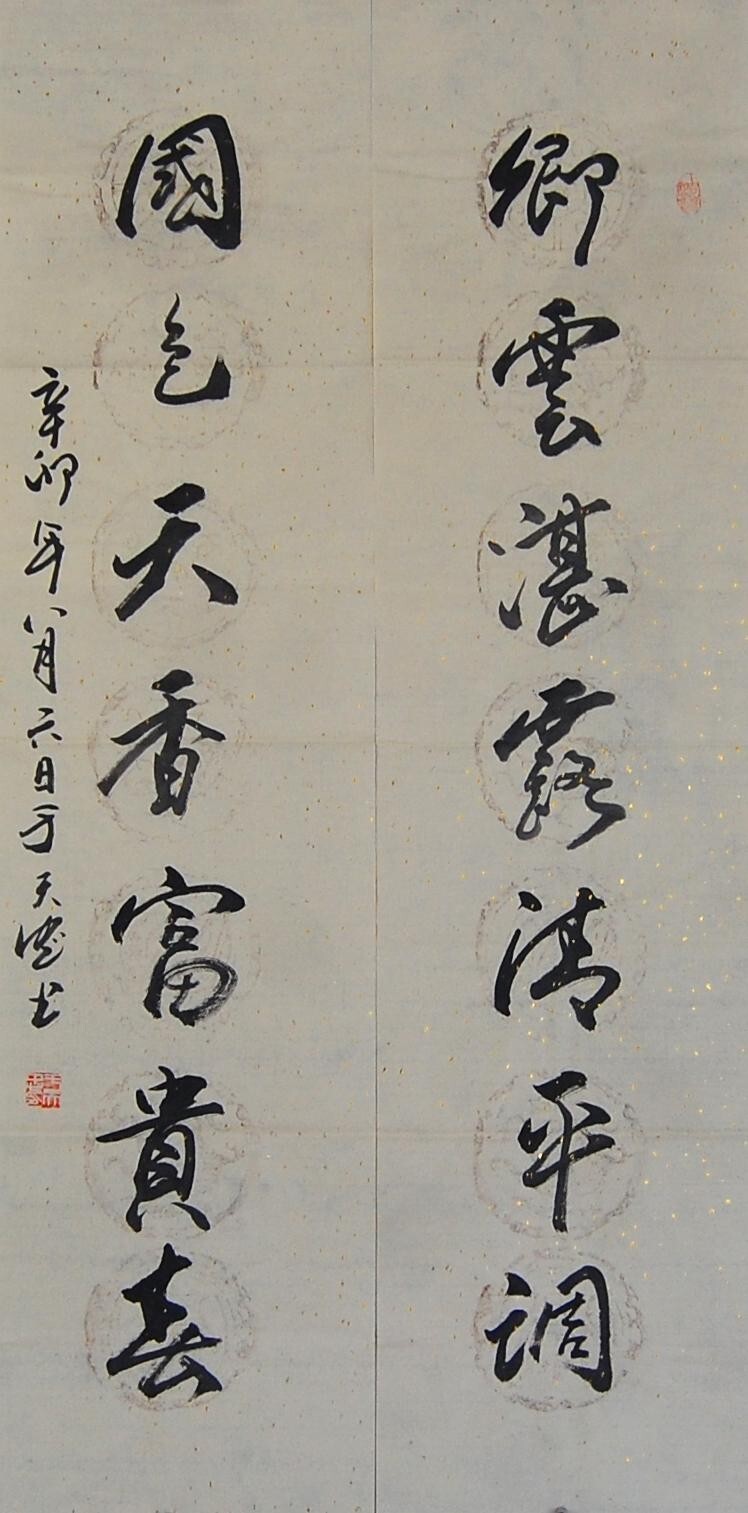 卿雲湛露清平調
國色天香富貴春
辛卯年八月六日于天德書